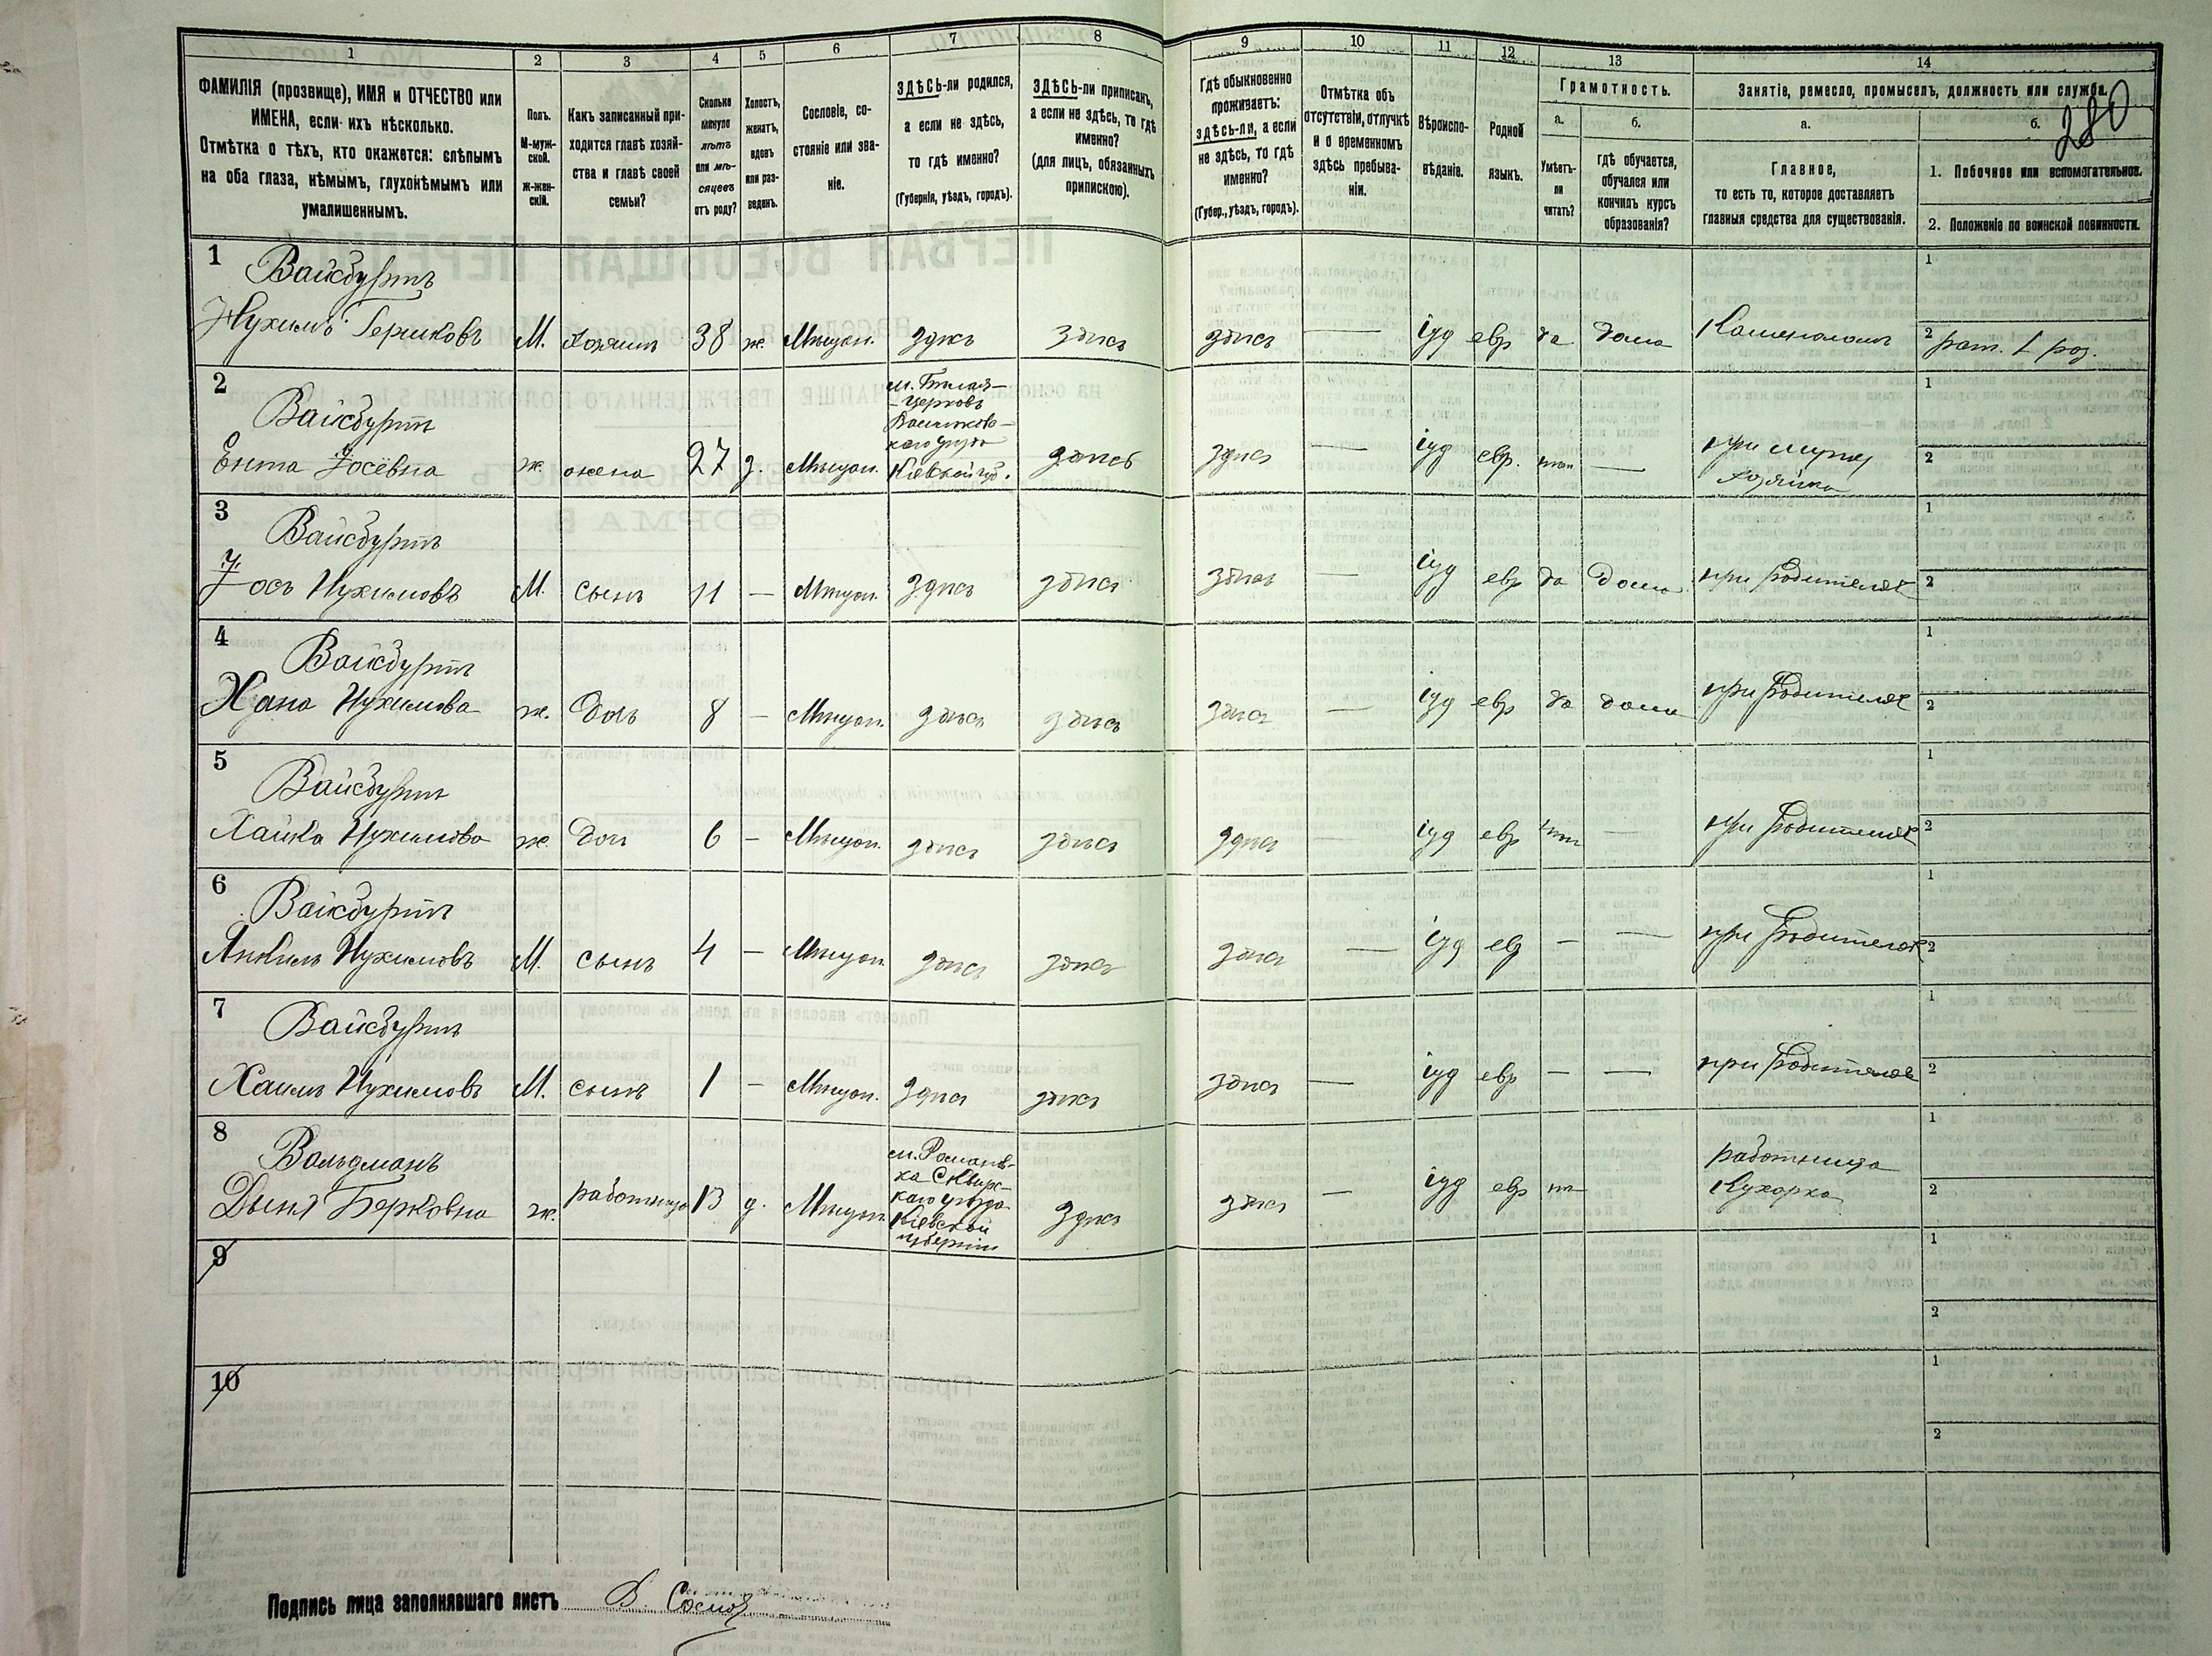 1 2 3 4 5 6 7 8 9 10 11 12 13 14
ФАМИЛІЯ (прозвище), ИМЯ и ОТЧЕСТВО или
ИМЕНА, если ихъ нѣсколько.
Отмѣтка о тѣхъ, кто окажется: слѣпымъ
на оба глаза, нѣмымъ, глухонѣмымъ или
умалишеннымъ.
Полъ.
М-муж-
ской.
ж-жен-
скій.
Какъ записанный при-
ходится главѣ хозяй-
ства и главѣ своей
семьи?
Сколько
минуло
лѣтъ
или мѣ-
сяцевъ
отъ роду?
Холостъ,
женатъ,
вдовъ
или раз-
веденъ.
Сословіе, со-
стояніе или зва-
ніе.
ЗДѢСЬ-ли родился,
а если не здѣсь,
то гдѣ именно?
(Губернія, уѣздъ, городъ).
ЗДѢСЬ-ли приписанъ,
а если не здѣсь, то гдѣ
именно?
(для лицъ, обязанныхъ
припискою).
Гдѣ обыкновенно
проживаетъ:
здѣсь-ли, а если
не здѣсь, то гдѣ
именно?
(Губер., уѣздъ, городъ).
Отмѣтка объ
отсутствіи, отлучкѣ
и о временномъ
здѣсь пребыва-
ніи.
Вѣроиспо-
вѣданіе.
Родной
языкъ.
Грамотность.
а.
Умѣетъ-
ли
читать?
б.
гдѣ обучается,
обучался или
кончилъ курсъ
образованія?
Занятіе, ремесло, промыселъ, должность или служба.
280
а.
Главное,
то есть то, которое доставляетъ
главныя средства для существованія.
б.
1. Побочное или вспомогательное.
2. Положеніе по воинской повинности.
1 Вайсбуртъ 1
Нухимъ Гершковъ М. хозяинъ 38 ж. Мѣщан. здѣсь здѣсь здѣсь — іуд евр да дома 2 рат. 1 раз.
2 Вайсбуртъ м. Бѣлая- 1
Церковь
Васильков-
каго уѣзда
Ента Іосевна ж. жена 27 з. Мѣщан. Кіевской губ. здѣсь здѣсь — іуд евр. нѣт — при мужѣ 2
хозяйка
3 Вайсбуртъ 1
Іось Нухимовъ М. сынъ 11 — Мѣщан. здѣсь здѣсь здѣсь — іуд евр да дома при родителях 2
4 Вайсбуртъ 1
Хана Нухимова ж. доч 8 — Мѣщан. здѣсь здѣсь здѣсь — іуд евр да дома при родителях 2
5 Вайсбуртъ 1
Хайка Нухимова ж. доч 6 — Мѣщан. здѣсь здѣсь здѣсь — іуд евр нѣт — при родителях 2
6 Вайсбуртъ 1
Янкиль Нухимовъ М. сынъ 4 — Мѣщан. здѣсь здѣсь здѣсь — іуд евр — — при родителях 2
7 Вайсбуртъ 1
Хаимъ Нухимовъ М. сынъ 1 — Мѣщан. здѣсь здѣсь здѣсь — іуд евр — — при родителях 2
8 Вальдманъ м. Романов- работница 1
ка Сквирс-
каго уѣзда
Кіевской
губерніи
Дыня Берковна ж. работница 13 д. Мѣщан. здѣсь здѣсь — іуд евр нѣт Кухарка 2
9 1
2
10 1
2
Подпись лица заполнявшаго листъ В.